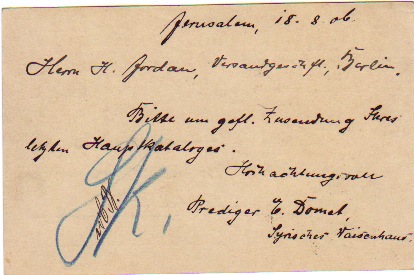 Jerusalem, 18. 8. 06.
Herrn H. Jordan, Versandgeschäft, Berlin.
Bitte um gefl. Zusendung Ihres
letzten Hauptkataloges.
Hochachtungsvoll
Prediger C. Domet,
Syrisches Waisenhaus.
K.